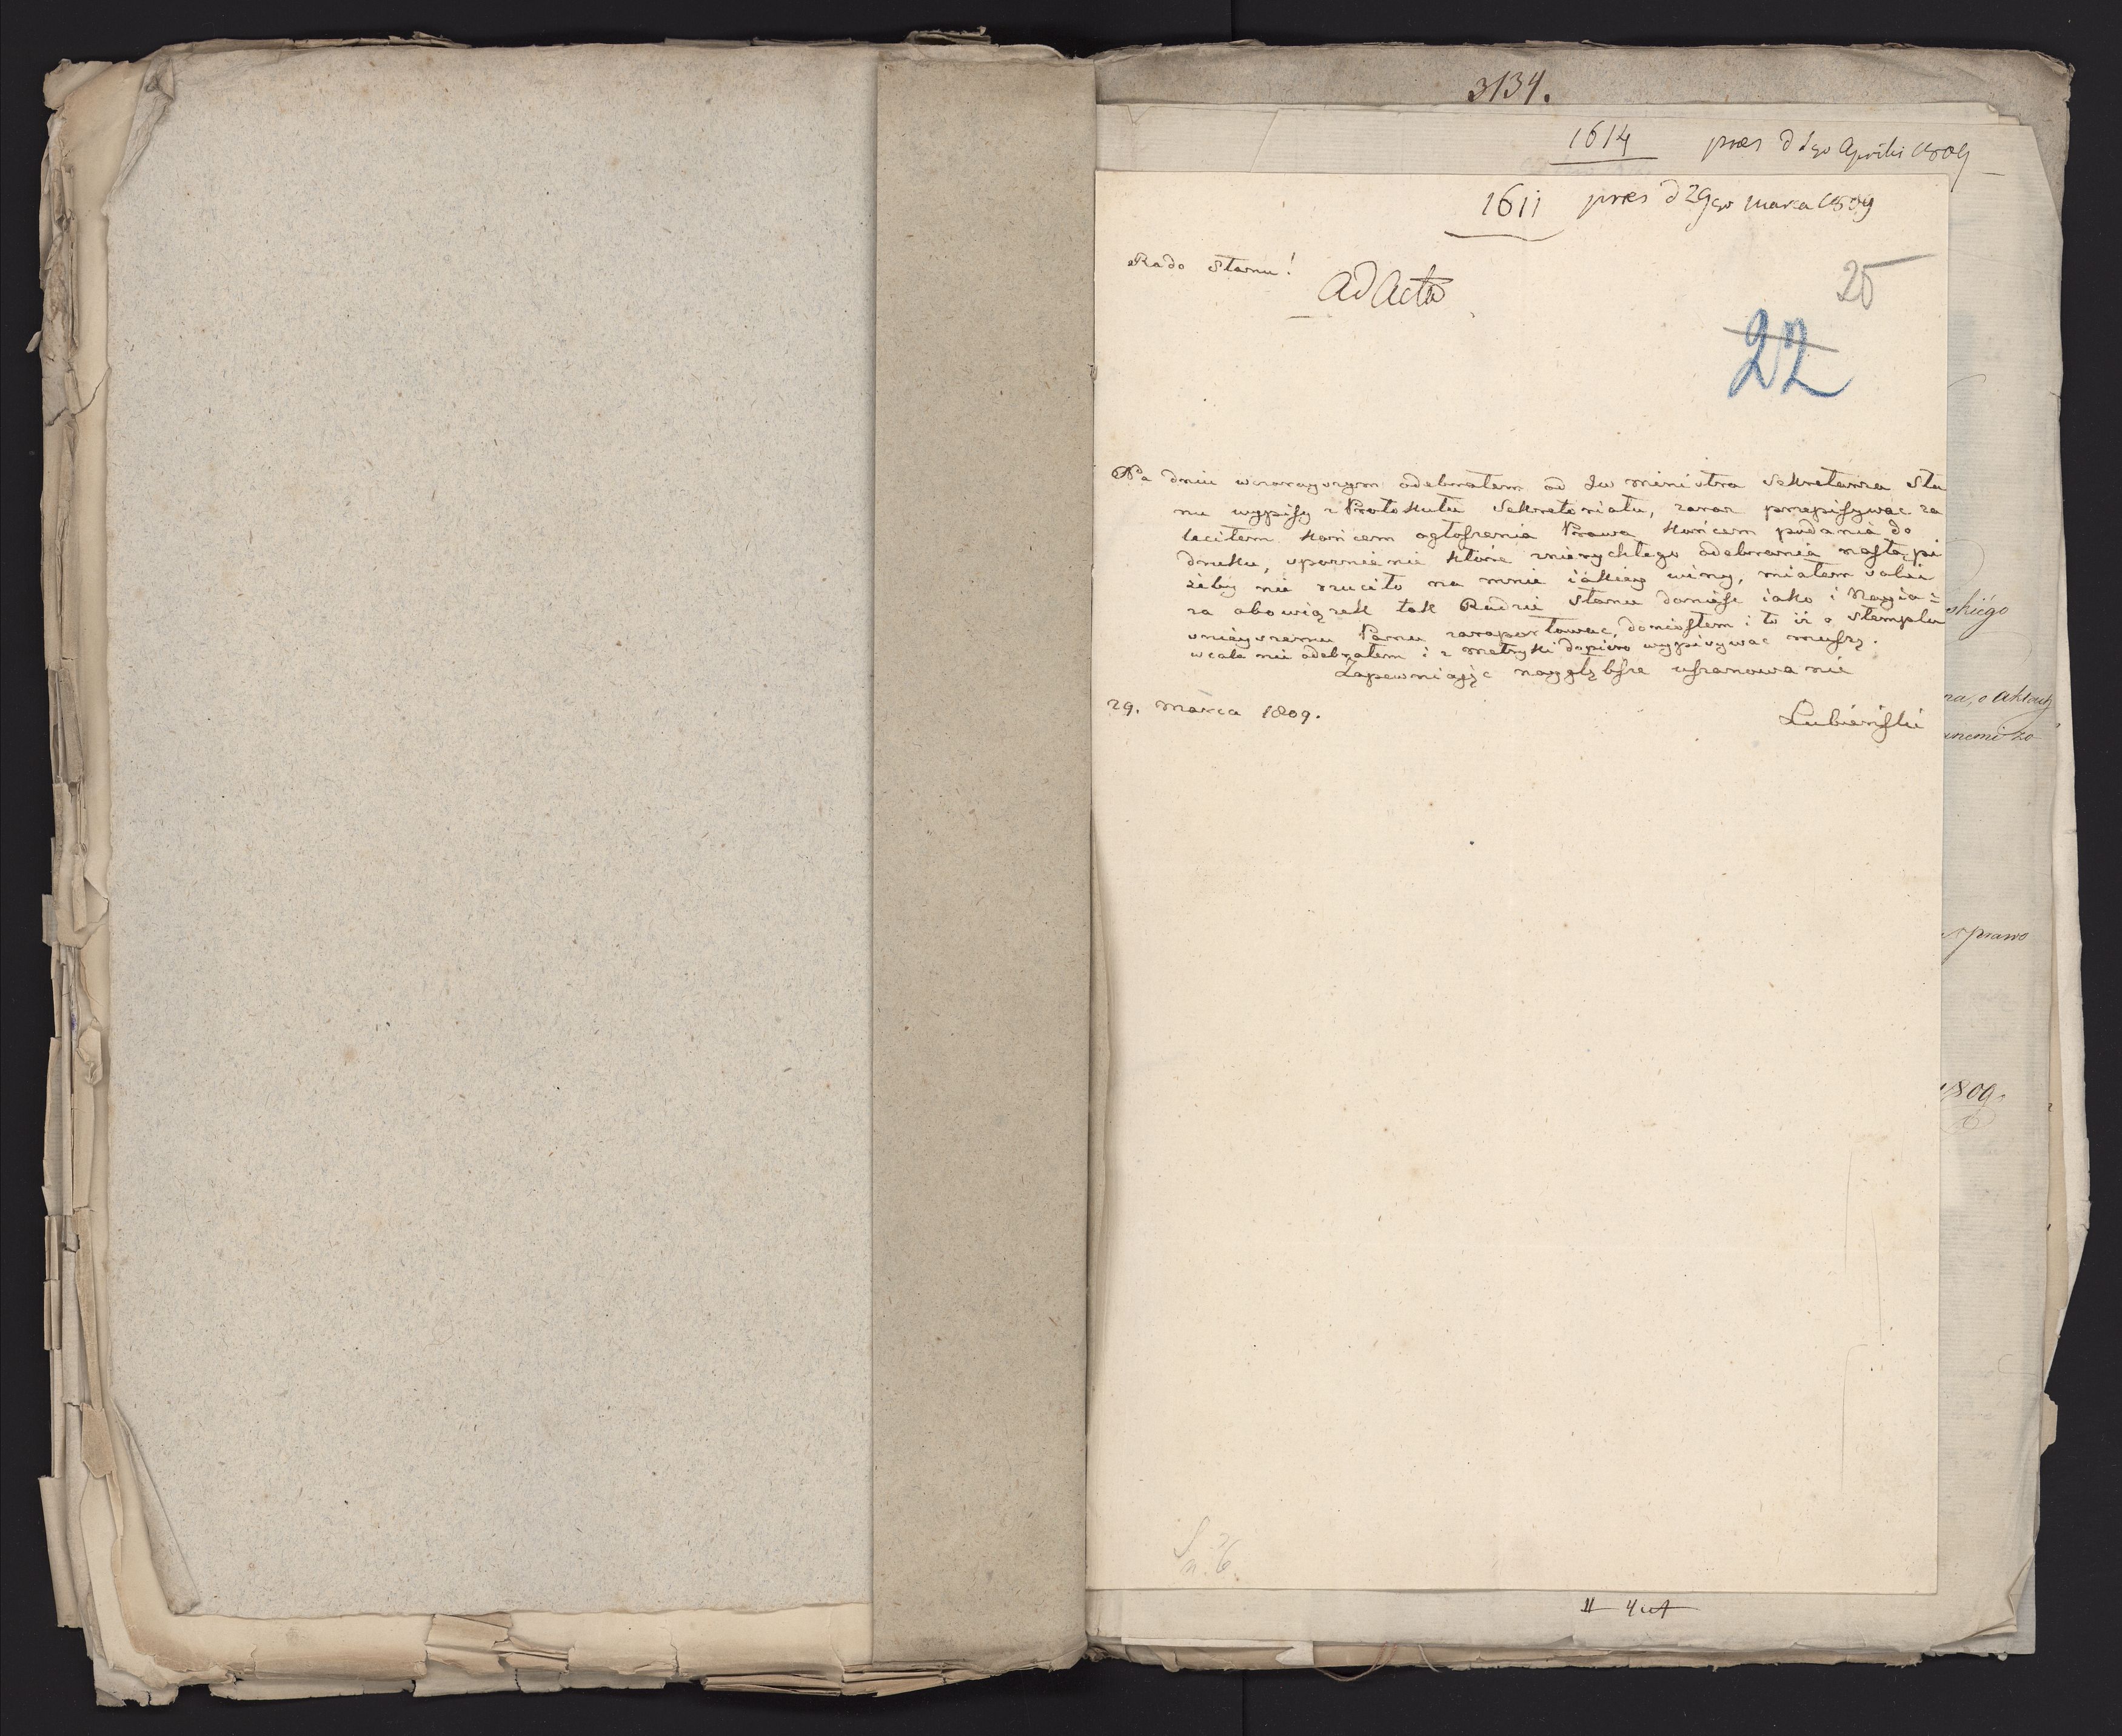 3134.
1614 præs d 1go Aprilis 1809
1611 præs d 29go marca 1809
Rado Stanu!
Ad Acta
25
22
Na dniu wczorayszym odebrałem od Jw ministra Sekretarza Sta
nu wypisy z Protokułu Sekretariatu, zaraz przepisywac za
leciłem końcem ogłoszenia Prawa końcem podania do
druku, spoznienie które znierychłego odebrania nastąpi
żeby nie rzuciło na mnie iakiey winy, miałem sobie
za obowiązek tak Radzie Stanu donieść iako i Nayia=
śnieyszemu Panu zaraportowac, doniosłem i to iż o stemplu
wcale nie odebrałem i z metryki dopiero wypisywac muszę.
Zapewniając naygłębsze uszanowanie
29. marca 1809.
Łubieński
skiégo
na, o aktach
prawo
1809.